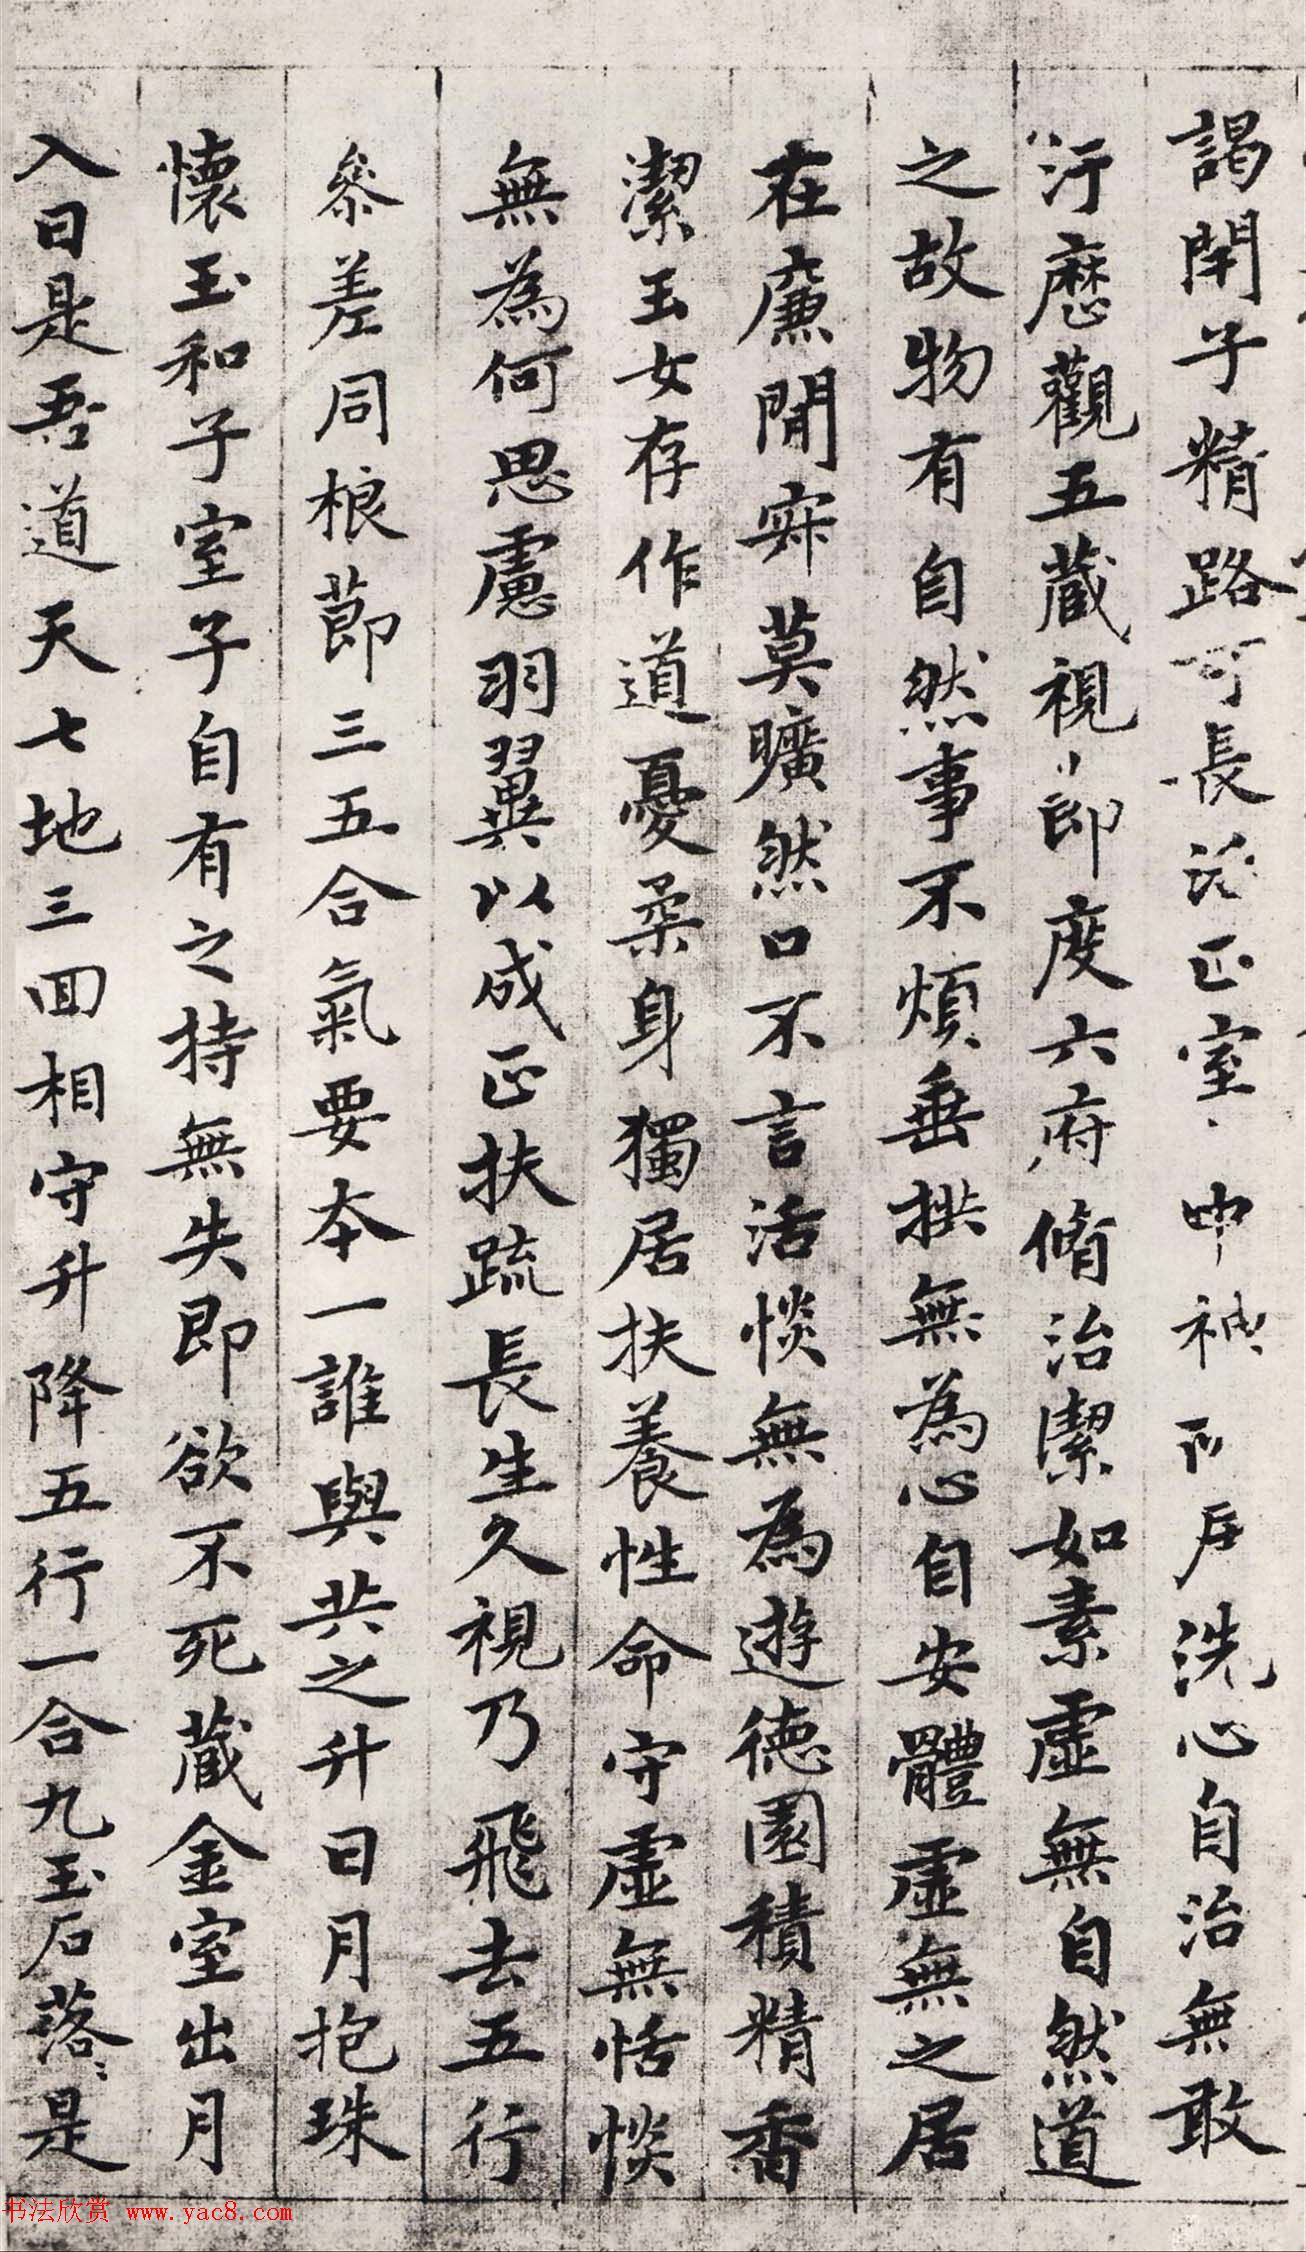 謁閇子精路可長活正室中神所居洗心自治無敢
汙歷觀五藏視節度六府脩治潔如素虛無自然道
之故物有自然事不煩垂拱無為心自安體虛無之居
在廉閒寂莫曠然口不言活惔無為遊德園積精香
潔玉女存作道憂柔身獨居扶養性命守虛無恬惔
無為何思慮羽翼以成正扶疏長生久視乃飛去五行
參差同根節三五合氣要本一誰與共之升日月抱珠
懷玉和子室子自有之持無失即欲不死藏金室出月
入日是吾道天七地三回相守升降五行一合九玉石落〻是
书法欣赏 www.yac8.com